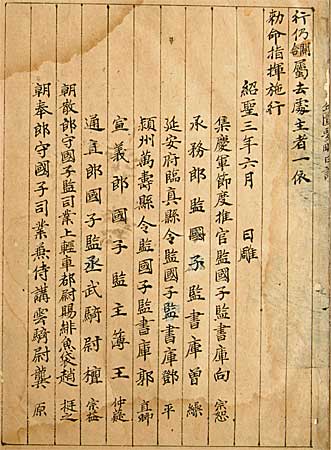 行仍關屬去處主者一依
勑命指揮施行
紹聖三年六月 日雕
集慶軍節度推官監國子監書庫向 宗恕
承務郎監國子監書庫曾 繰
延安府臨真縣令監國子監書庫鄧 平
潁州萬壽縣令監國子監書庫郭 直卿
宣義郎國子監主簿王 仲薿
通直郎國子監丞武騎尉檀 宗益
朝散郎守國子監司業上輕車都尉賜緋魚袋趙 挺之
朝奉郎守國子司業兼侍講雲騎尉龔 原